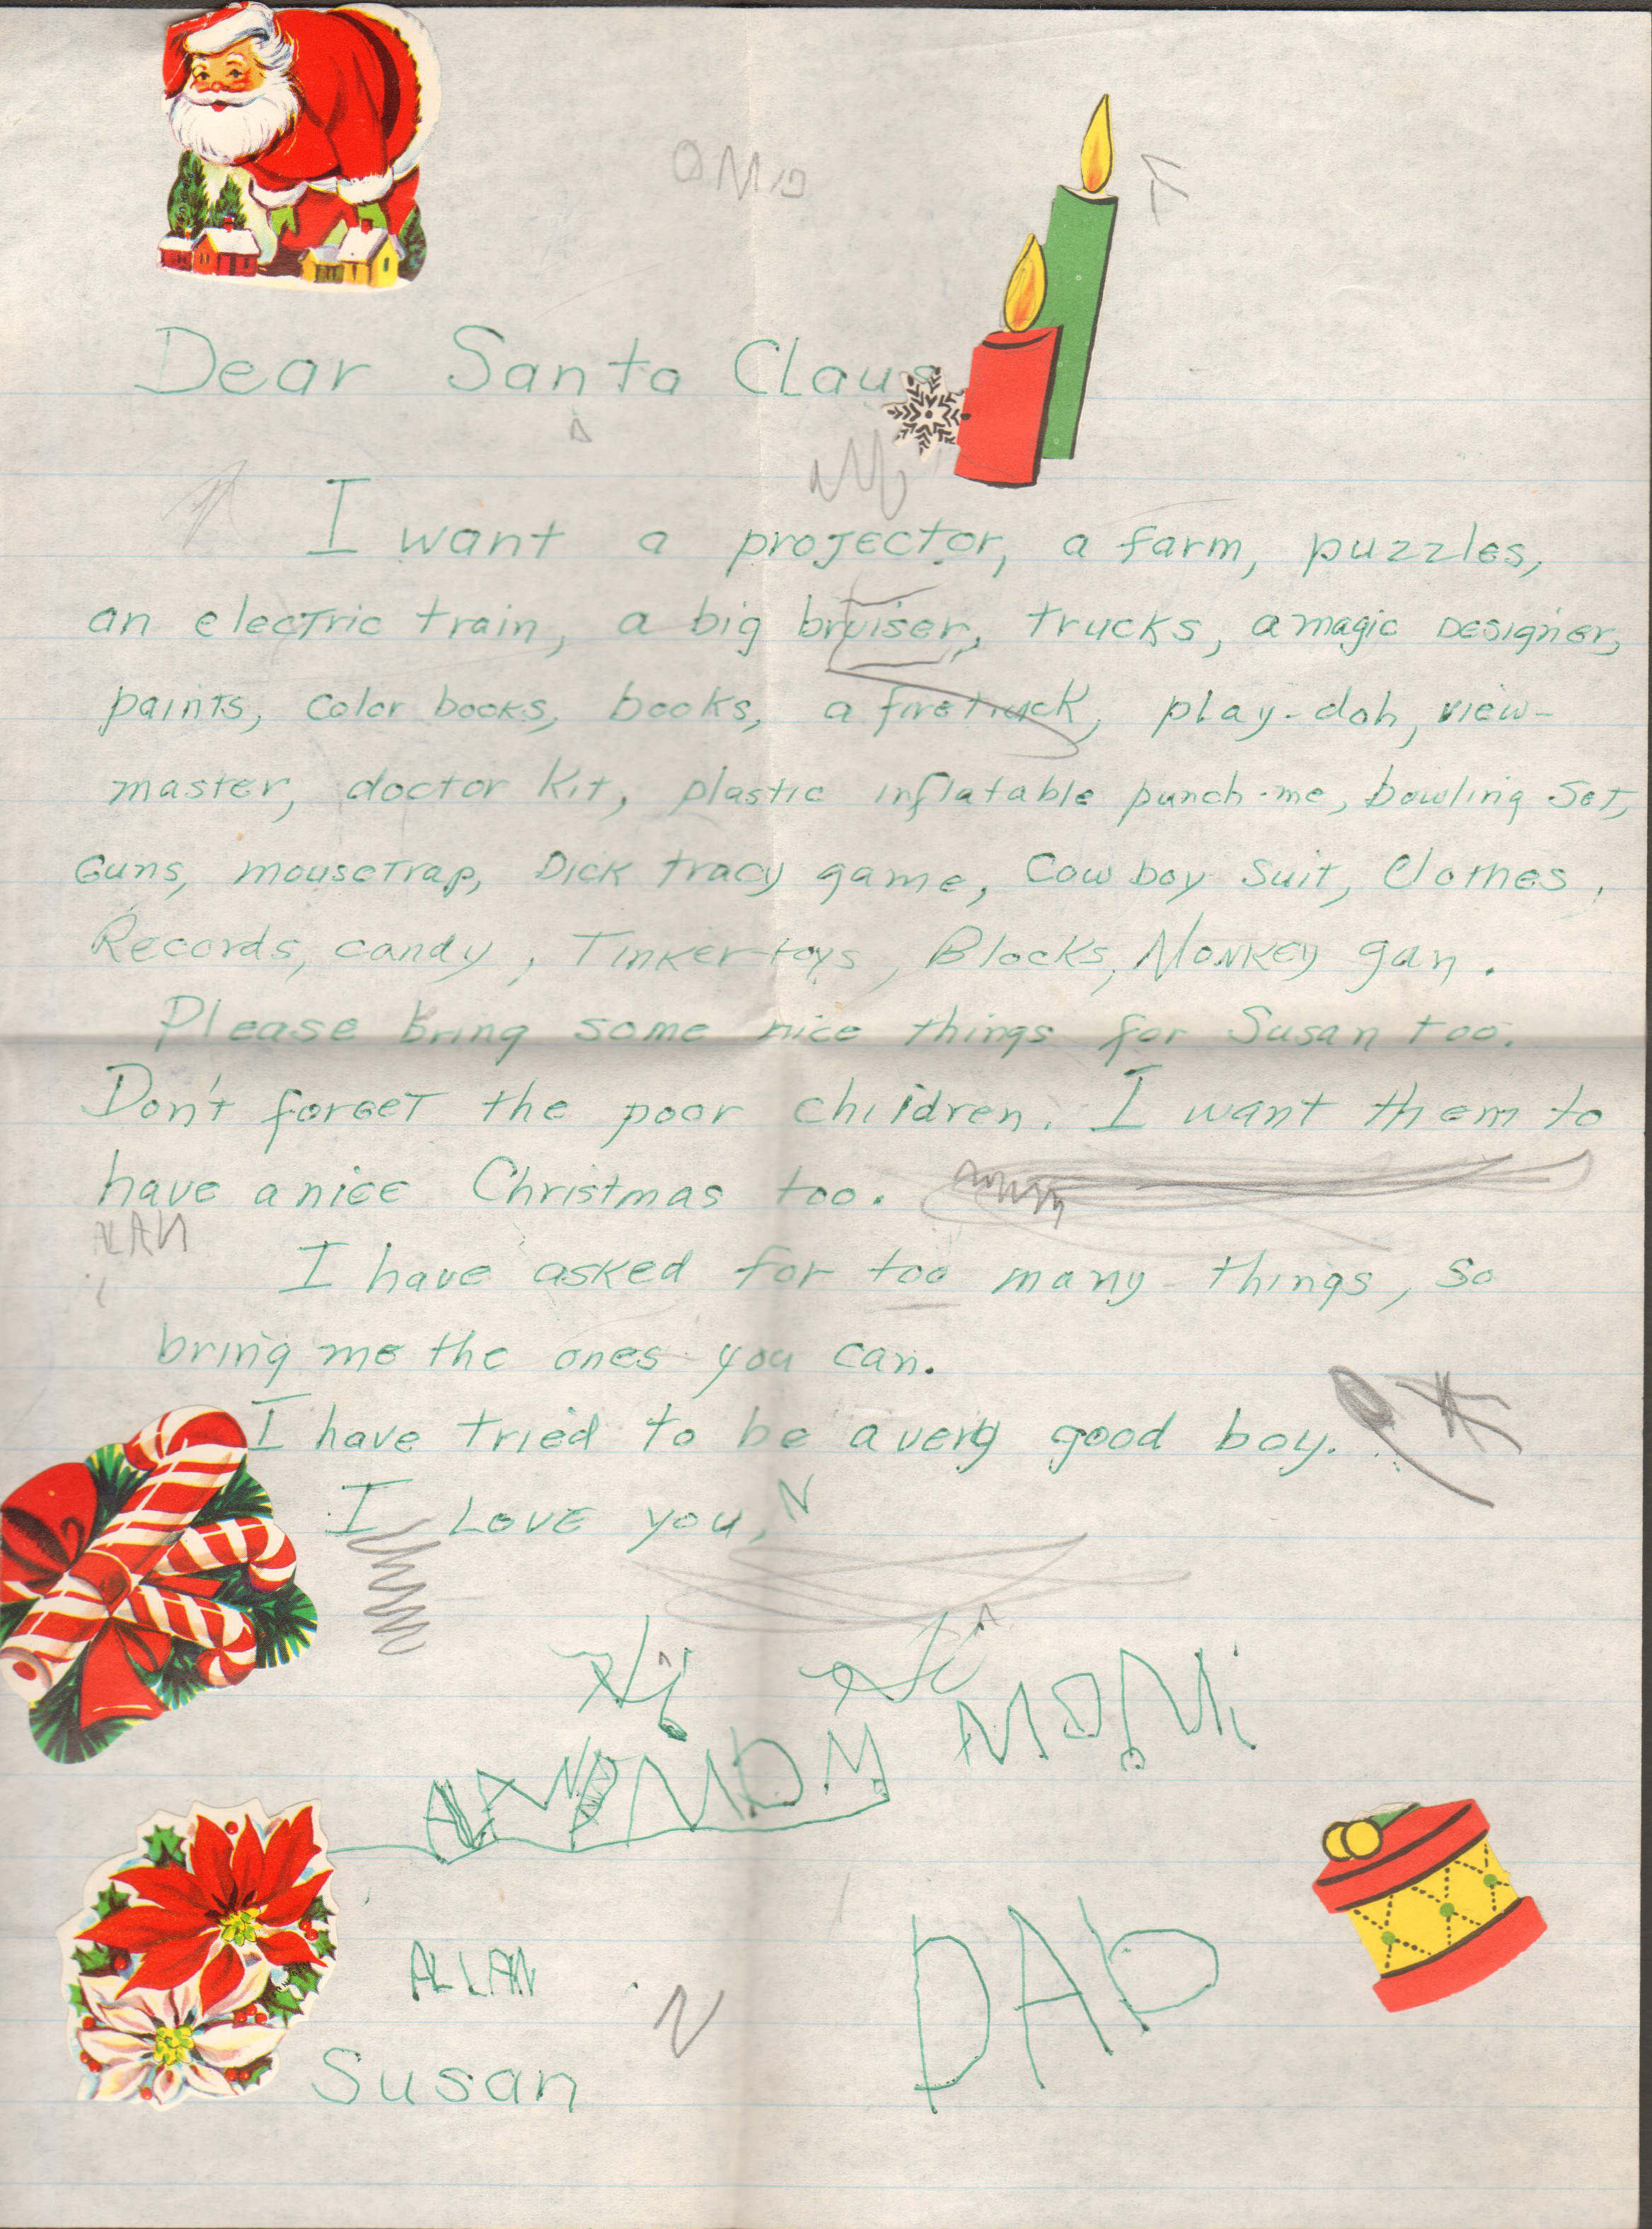 Dear Santa Claus
I want a projector, a farm, puzzles,
an electric train, a big bruiser, trucks, a magic Designer,
paints, color books, books, a firetruck, play-doh, view-
master, doctor kit, plastic inflatable punch-me, bowling set,
Guns, mousetrap, Dick tracy game, Cowboy suit, Clothes,
Records, candy, Tinker-toys, Blocks, Monkey gun.
Please bring some nice things for Susan too.
Don't forget the poor children. I want them to
have a nice Christmas too.
ALAN
I have asked for too many things, so
bring me the ones you can.
I have tried to be a very good boy.
I Love you,
N
MOM
ALAN MOM
ALLAN
DAD
N
Susan